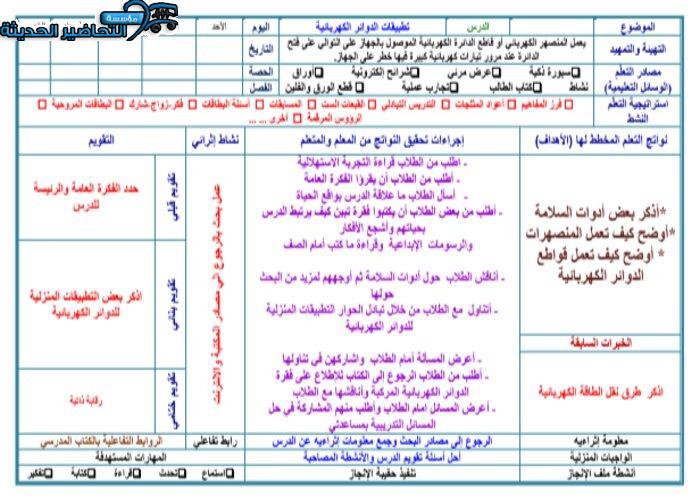 مؤسسة
التحاضير الحديثة
الموضوع
الدرس
تطبيقات الدوائر الكهربائية
اليوم
الأحد
التهيئة والتمهيد
يعمل المنصهر الكهربائي أو قاطع الدائرة الكهربائية الموصول بالجهاز على التوالي على فتح
الدائرة عند مرور تيارات كهربائية كبيرة فيها خطر على الجهاز.
التاريخ
مصادر التعلم
(الوسائل التعليمية)
سبورة ذكية □ عرض مرئي □ شرائح إلكترونية □ أوراق □
نشاط □ كتاب الطالب □ تجارب عملية □ قطع الورق والفلين
الحصة
الفصل
استراتيجية التعلم
النشط
□ فرز المفاهيم □ أعواد المثلجات □ التدريس التبادلي □ القبعات الست □ المسابقات □ أسئلة البطاقات □ فكر-زواج-شارك □ البطاقات المروحية □
الرؤوس المرقمة □ أخرى ... ...
نواتج التعلم المخطط لها (الأهداف)
إجراءات تحقيق النواتج من المعلم والمتعلم
نشاط إثرائي
التقويم
*أذكر بعض أدوات السلامة
*أوضح كيف تعمل المنصهرات
* أوضح كيف تعمل قواطع
الدوائر الكهربائية
الخبرات السابقة
اذكر طرق نقل الطاقة الكهربائية
- اطلب من الطلاب قراءة التجربة الاستهلالية
- أطلب من الطلاب أن يقرؤا الفكرة العامة
- أسأل الطلاب ما علاقة الدرس بواقع الحياة
- أطلب من بعض الطلاب أن يكتبوا فقرة تبين كيف يرتبط الدرس
بحياتهم وأشجع الأفكار
والرسومات الإبداعية وقراءة ما كتب أمام الصف
- أناقش الطلاب حول أدوات السلامة ثم أوجههم لمزيد من البحث
حولها
- أتناول مع الطلاب من خلال تبادل الحوار التطبيقات المنزلية
للدوائر الكهربائية
- أعرض المسألة أمام الطلاب واشاركهن في تناولها
- أطلب من الطلاب الرجوع الى الكتاب للاطلاع على فقرة
الدوائر الكهربائية المركبة وأناقشها مع الطلاب
- أعرض المسائل امام الطلاب وأطلب منهم المشاركة في حل
المسائل التدريبية بمساعدتي
عمل بحث بالرجوع الى مصادر المكتبة والانترنت
تقويم قبلي
حدد الفكرة العامة والرئيسة
للدرس
تقويم بنائي
اذكر بعض التطبيقات المنزلية
للدوائر الكهربائية
تقويم ختامي
رقابة ذاتية
معلومة إثراءيه
الرجوع الى مصادر البحث وجمع معلومات إثراءيه عن الدرس
رابط تفاعلي
الروابط التفاعلية بالكتاب المدرسي
الواجبات المنزلية
أحل أسئلة تقويم الدرس والأنشطة المصاحبة
المهارات المستهدفة
أنشطة ملف الإنجاز
تنفيذ حقيبة الإنجاز
□ استماع □ تحدث □ قراءة □ كتابة □ تفكير